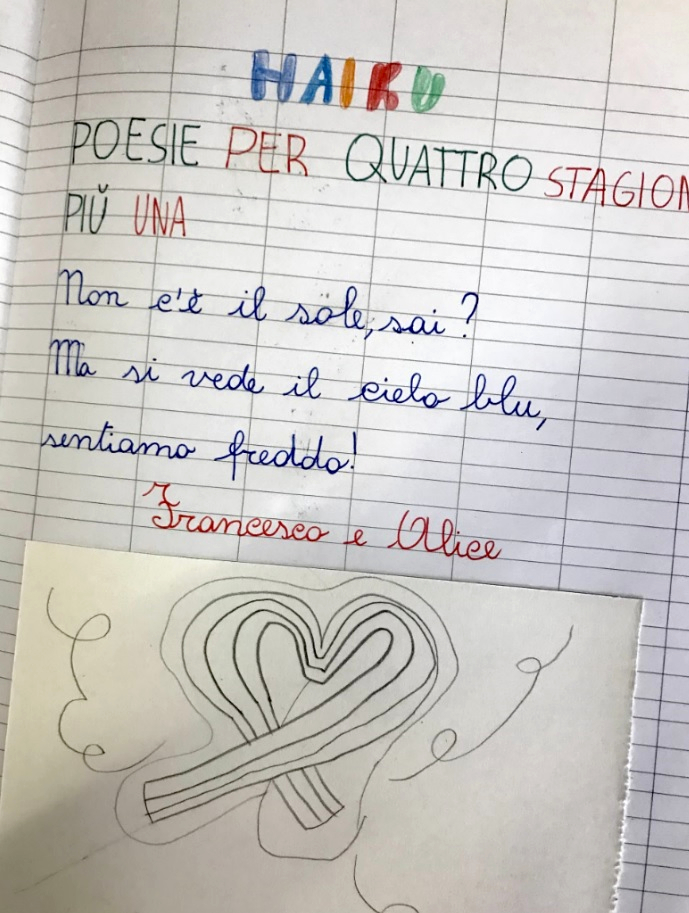 HAIKU
POESIE PER QUATTRO STAGION
PIÙ UNA
Non c'è il sole, sai?
Ma si vede il cielo blu,
sentiamo freddo!
Francesco e Alice